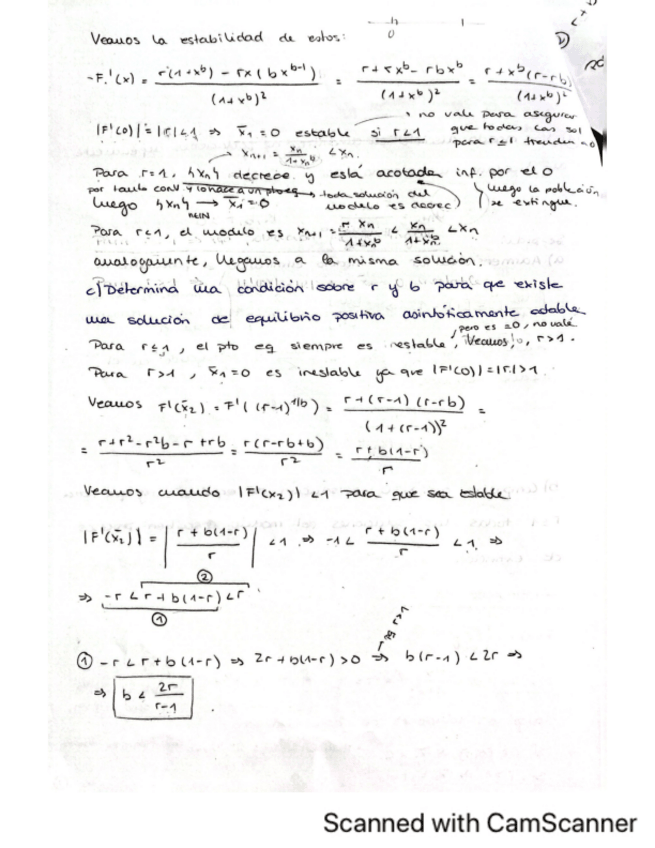 Veamos la estabilidad de estos:
0
-F'(x) = r(1+x^b) - rx(bx^{b-1}) / (1+x^b)^2 = r+rx^b - rbx^b / (1+x^b)^2 = r+x^b(r-rb) / (1+x^b)^2
|F'(0)| = |r| < 1 ⇒ x̄₁ = 0 estable si r<1
no vale para asegurar
que todas las sol
para r≤1 tienden a 0
→ x_{n+1} = x_n / 1+x_n^b < x_n
Para r=1, {x_n} decrece y está acotada inf. por el 0
por tanto conv
toda solución del
modelo es decrec)
luego la población
se extingue.
luego {x_n} → x̄₁ = 0
n∈ℕ
Para r<1, el modelo es x_{n+1} = r x_n / 1+x_n^b < x_n / 1+x_n^b < x_n
analogamente, llegamos a la misma solución.
c) Determina una condición sobre r y b para qe existe
una solución de equilibrio positiva asintóticamente estable
pero es =0, no vale
Para r≤1, el pto eq siempre es
Veamos
r>1.
Para r>1, x̄₁=0 es inestable ya que |F'(0)| = |r| > 1
Veamos F'(x̄₂) = F'((r-1)^{1/b}) = r+(r-1)(r-rb) / (1+(r-1))^2 =
= r+r²-r²b-r+rb / r² = r(r-rb+b) / r² = r+b(1-r) / r
Veamos cuando |F'(x₂)| < 1 para que sea estable
|F'(x̄₂)| = | r+b(1-r) / r | < 1 ⇒ -1 < r+b(1-r) / r < 1 ⇒
②
⇒ -r < r+b(1-r) < r
①
① -r < r+b(1-r) ⇒ 2r+b(1-r) > 0 ⇒ b(r-1) < 2r ⇒
⇒ b < 2r / r-1
Scanned with CamScanner